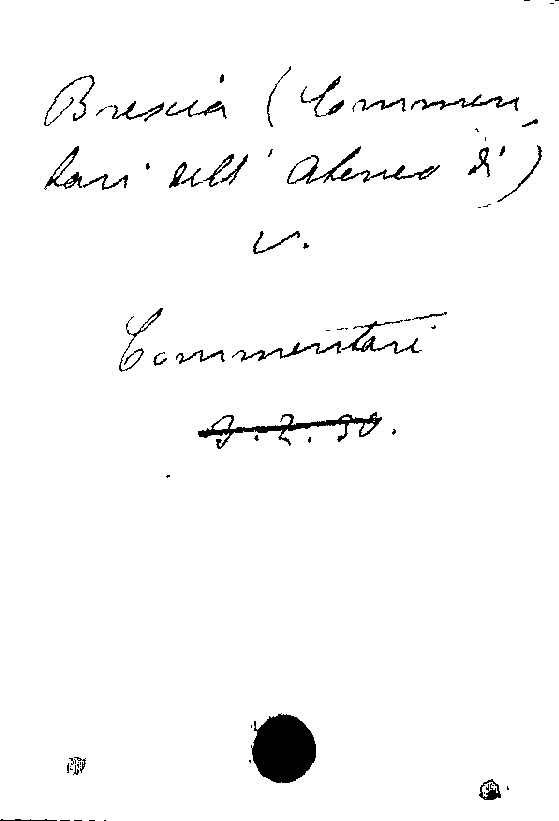 Brescia (Commen-
tari dell' Ateneo di)
v.
Commentari